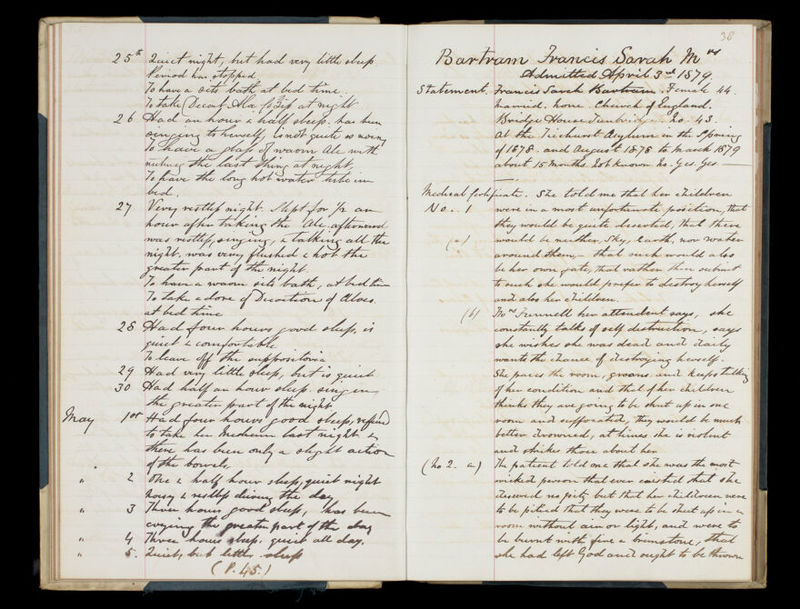 25th Quiet night, but had very little sleep
Period has stopped
To have a sitz bath at bed time.
To take Decoct. Alo at night
26 Had an hour & half sleep. has been
singing to herself, is not quite so noisy
To have a glass of warm Ale with
nutmeg the last thing at night.
To have the long hot water tube in
bed.
27 Very restless night. Slept for 1/2 an
hour after taking the Ale. afterwards
was restless, singing, & talking all the
night, was very flushed & hot the
greater part of the night.
To have a warm sitz bath, at bed time
To take a dose of Decoction of Aloes.
at bed time
28 Had four hours good sleep, is
quiet & comfortable
To leave off the suppositoria
29 Had very little sleep, but is quiet
30 Had half an hour sleep. singing
the greater part of the night.
May 1st Had four hours good sleep, refused
to take her Medicine last night &
there has been only a slight action
of the bowels
" 2 One & half hour sleep, quiet night
noisy & restless during the day
" 3 Three hours good sleep, has been
crying the greater part of the day
" 4 Three hours sleep. quiet all day.
" 5. Quiet, but little sleep
(P. 45.)
38
Bartram Francis Sarah Mrs
Admitted April 3rd 1879.
Statement. Francis Sarah Bartram. Female 44.
Married. none. Church of England.
Bridge House Tunbridge No. 43.
At the Ticehurst Asylum in the Spring
of 1878. and August 1878 to March 1879
about 15 months Not known No. Yes. Yes
Medical Certificate. She told me that her children
No. 1 were in a most unfortunate position, that
they would be quite deserted, that there
(a) would be neither Sky, Earth, nor water
around them - that such would also
be her own fate, that rather than submit
to such she would prefer to destroy herself
and also her children.
(b) Mrs Funnell her attendant says, she
constantly talks of self destruction, says
she wishes she was dead and daily
wants the chance of destroying herself.
She paces the room, groans and keeps talking
of her condition and that of her children
thinks they are going to be shut up in one
room and suffocated, they would be much
better drowned, at times she is violent
and strikes those about her
(No 2. a) The patient told me that she was the most
wicked person that ever existed that she
deserved no pity but that her children were
to be pitied that they were to be shut up in a
room without air or light, and were to
be burnt with fire & brimstone, that
she had left God and ought to be thrown